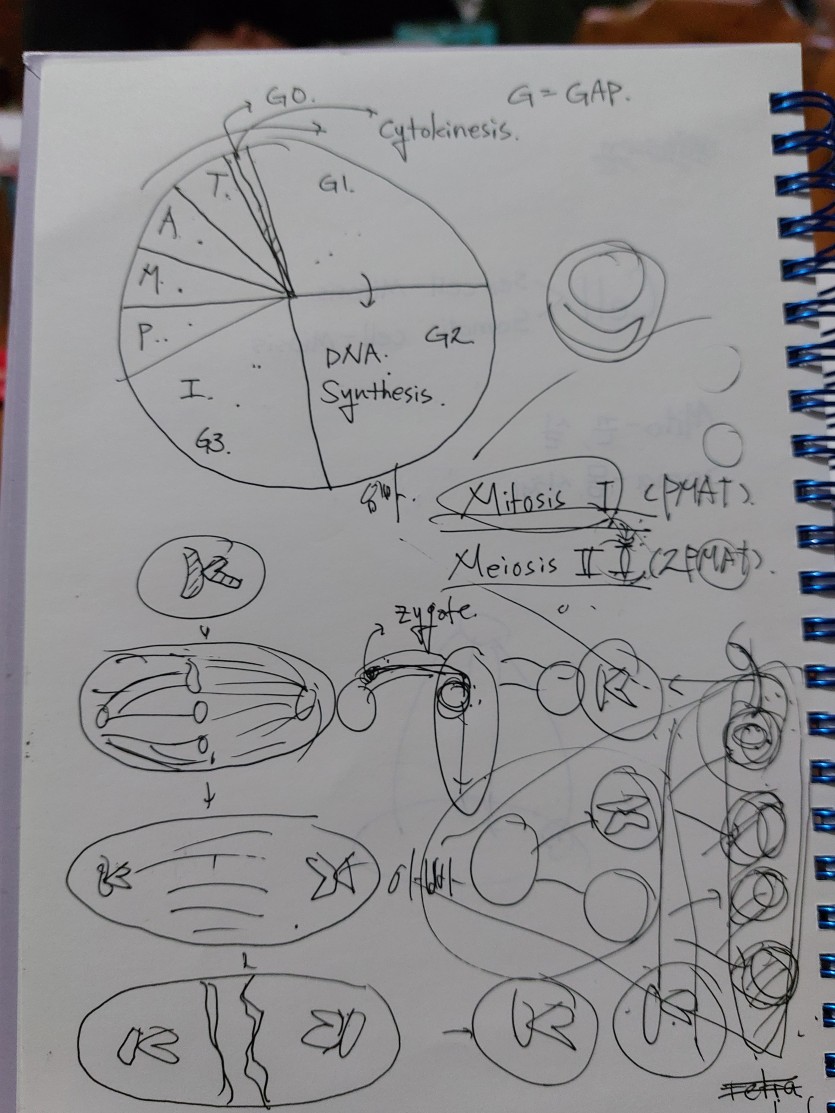 G0.
G = GAP.
Cytokinesis.
T.
G1.
A.
M.
P..
G2
DNA
Synthesis.
I.
G3.
Mitosis I (PMAT).
Meiosis II (2PMAT).
zygote.
Tetra